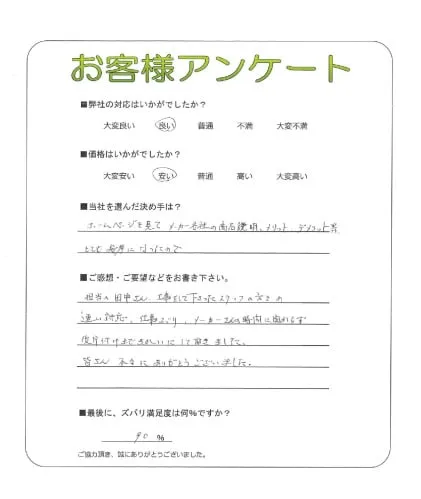 お客様アンケート
■弊社の対応はいかがでしたか？
大変良い 良い 普通 不満 大変不満
■価格はいかがでしたか？
大変安い 安い 普通 高い 大変高い
■当社を選んだ決め手は？
ホームページを見て メーカー各社の商品説明、メリット、デメリット等
とても参考になったので
■ご感想・ご要望などをお書き下さい。
担当の田中さん、工事をして下さったスタッフの方々の
速い対応、仕事ぶり、メーカーさんの時間に関わらず
後片付けまできれいにして頂きました。
皆さん 本当にありがとうございました。
■最後に、ズバリ満足度は何％ですか？
90 ％
ご協力頂き、誠にありがとうございました。